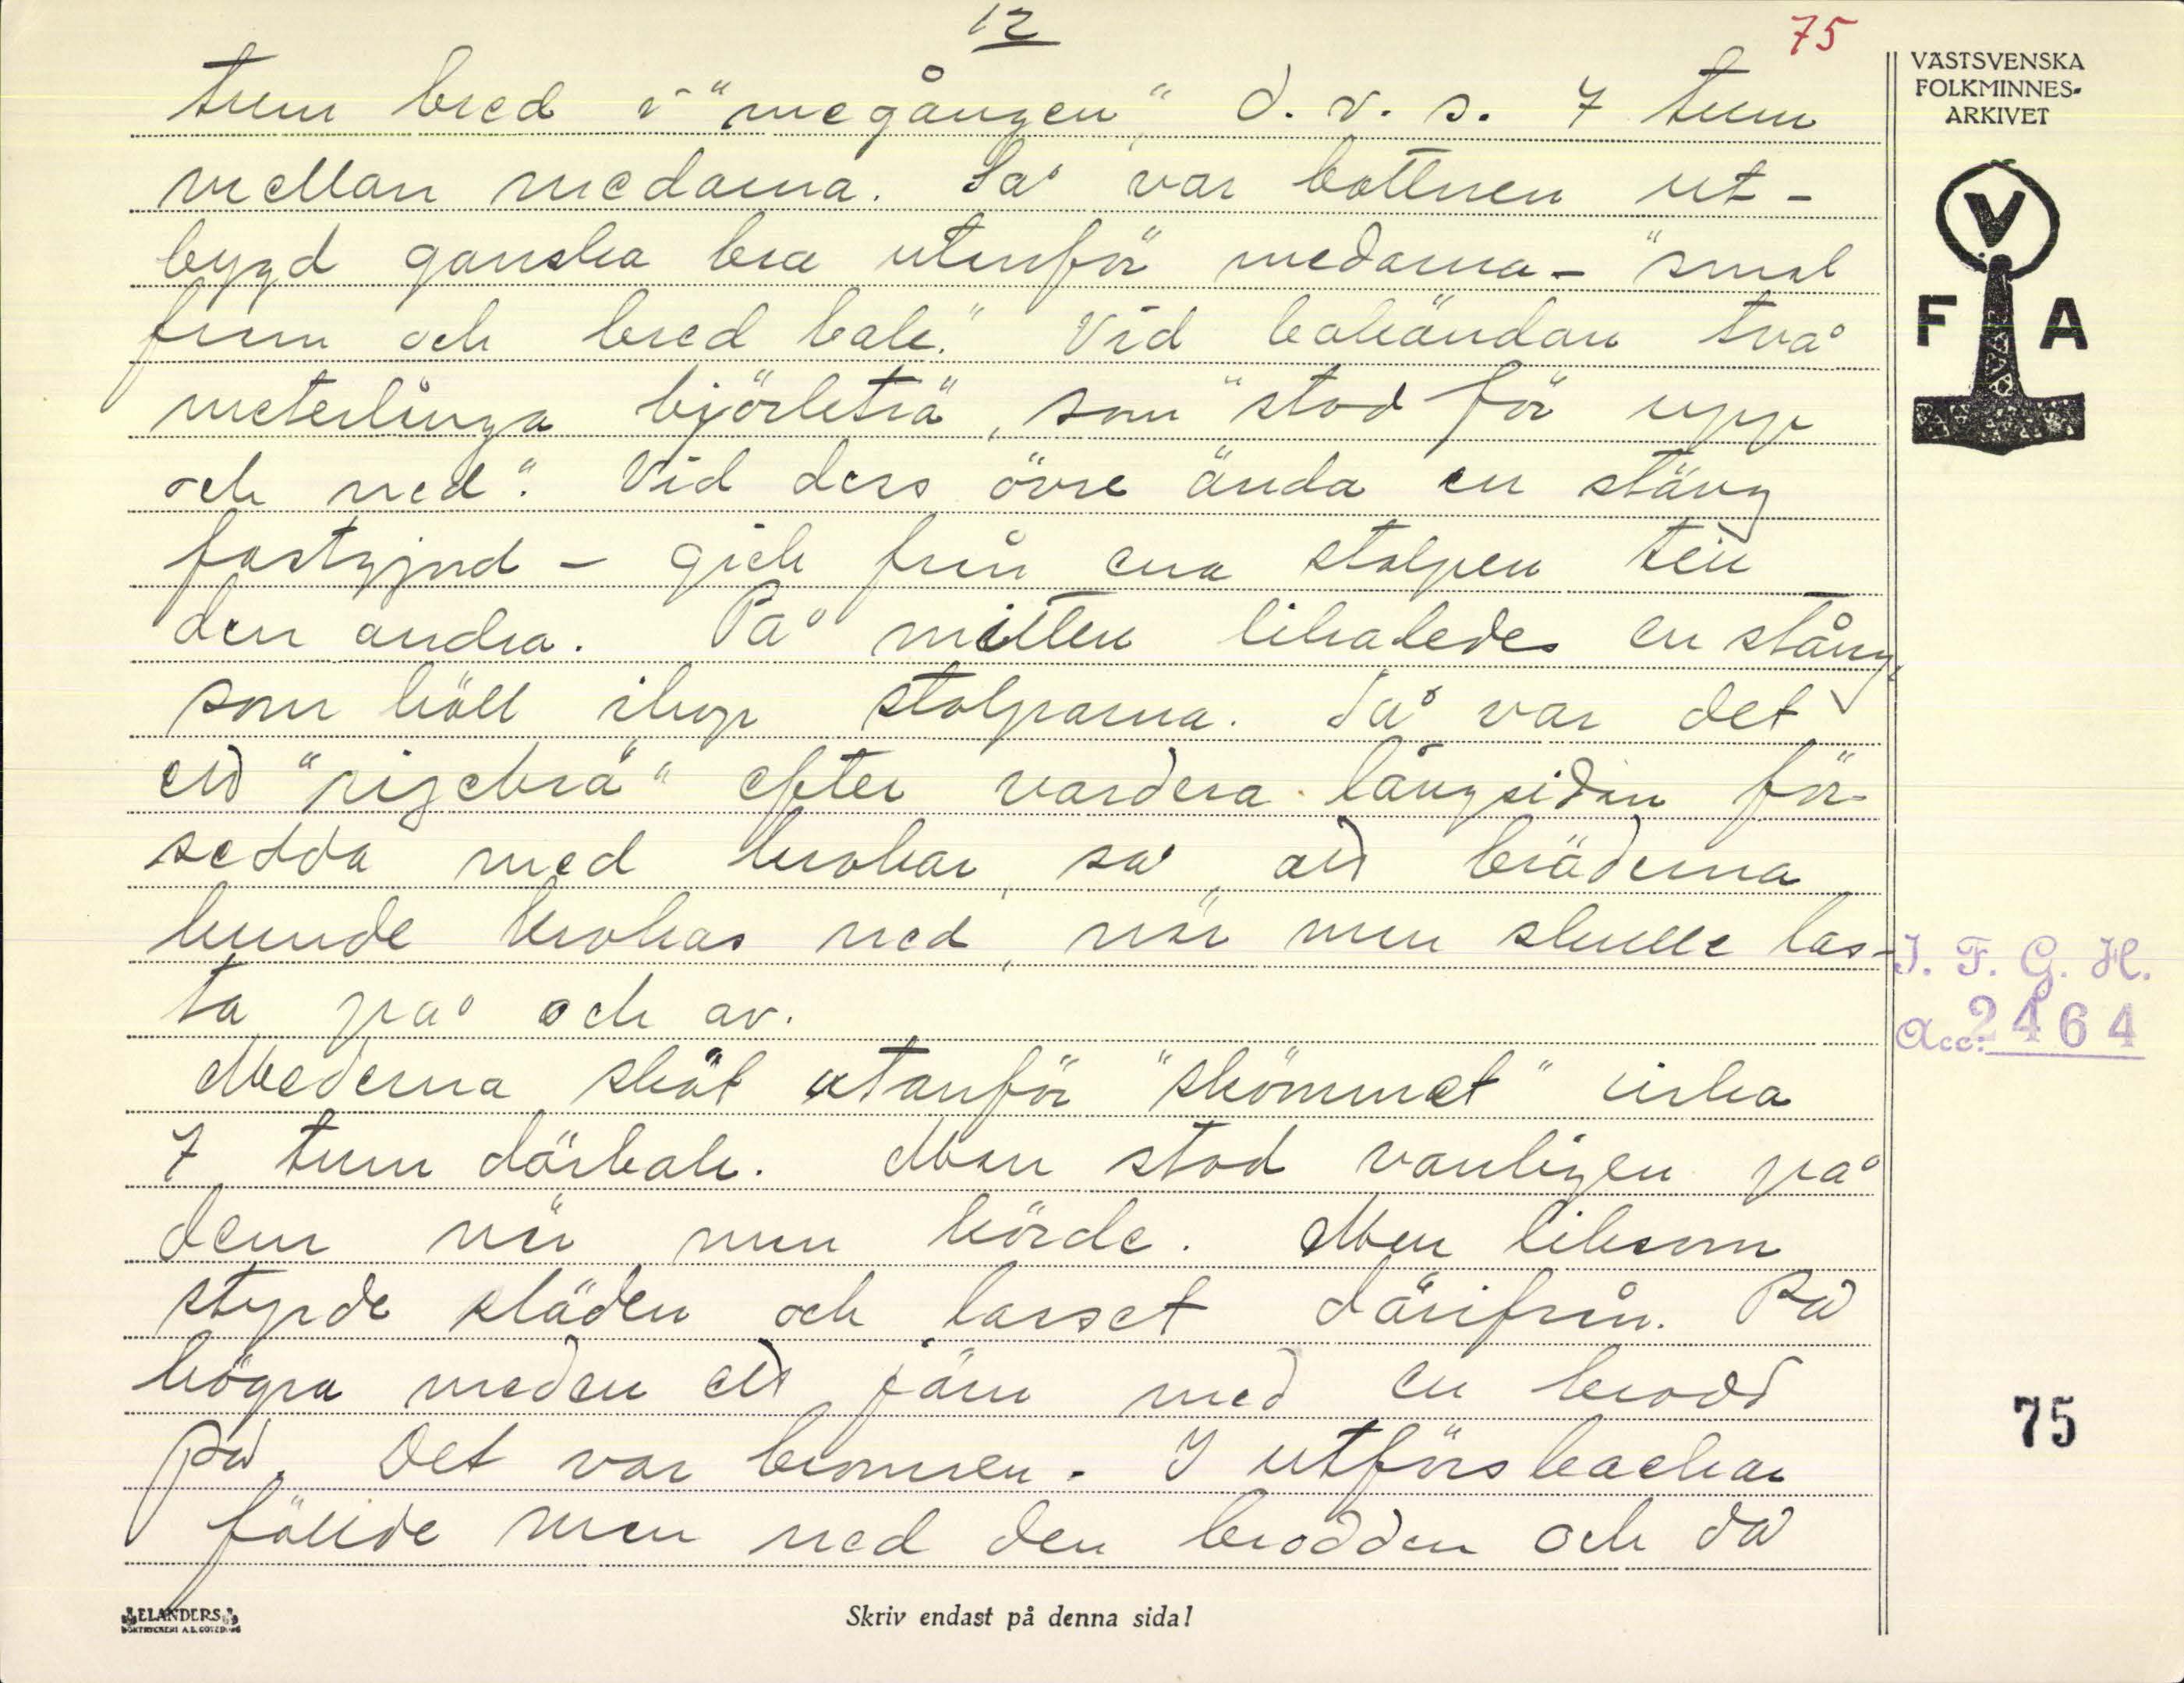 12
75
tum bred i "megången", d. v. s. 7 tum
mellan medarna. Så var bottnen ut-
bygd ganska bra utanför medarna - "smal
fram och bred bak." Vid bakändan två
meterlånga björketrä, som "stod för upp
och ned". Vid dess övre ända en stång
fastgjord - gick från ena stolpen till
den andra. På mitten likaledes en stång,
som höll ihop stolparna. Så var det
ett "rigebrä" efter vardera långsidan för-
sedda med krokar, så att bräderna
kunde krokas ned, när man skulle las-
ta på och av.
Mederna sköt utanför "skömmet" cirka
7 tum därbak. Man stod vanligen på
dem när man körde. Man liksom
styrde släden och lasset därifrån. På
högra meden ett järn med en brodd
på. Det var bromsen. I utförsbackar
fällde man ned den brodden och då
VÄSTSVENSKA
FOLKMINNES-
ARKIVET
V
F A
I. F. G. H.
Acc. 2464
75
ELANDERS
BOKTRYCKERI A.B. GÖTEBORG
Skriv endast på denna sida!